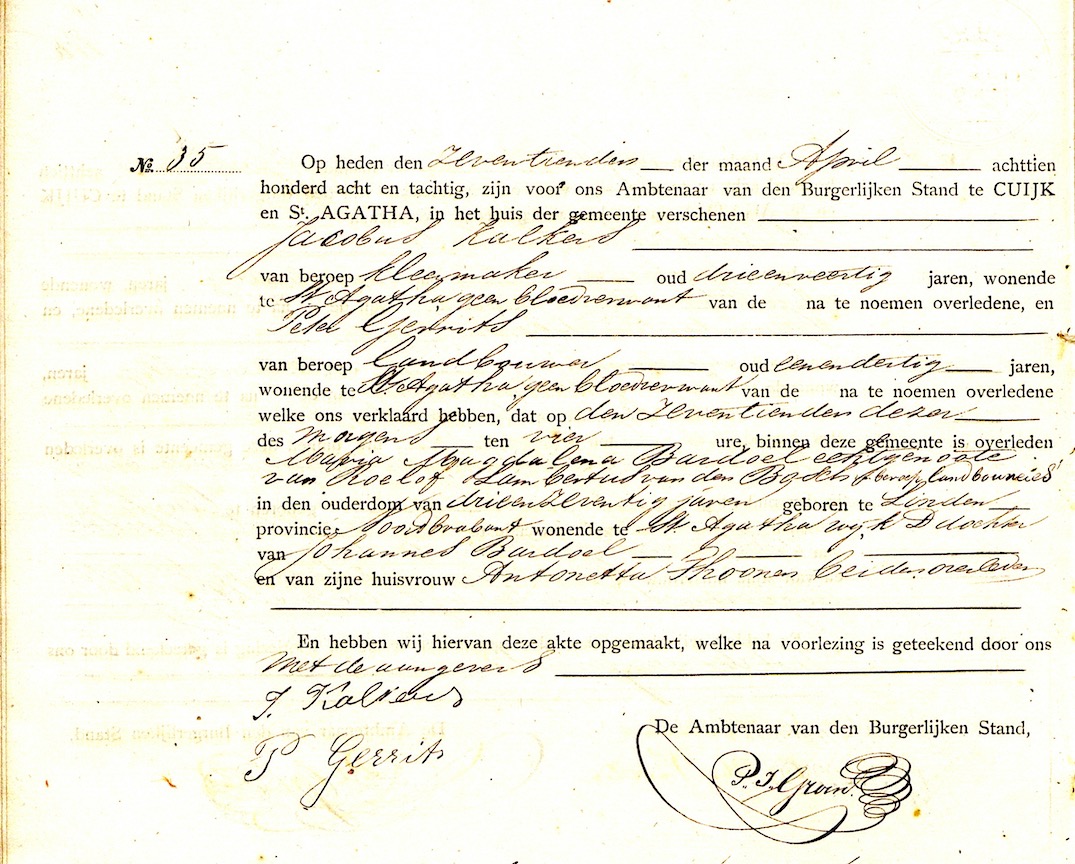 No. 35
Op heden den Zeventienden der maand April achttien
honderd acht en tachtig, zijn voor ons Ambtenaar van den Burgerlijken Stand te CUIJK
en St. AGATHA, in het huis der gemeente verschenen
Jacobus Kalkers
van beroep kleermaker oud drieenveertig jaren, wonende
te St Agatha, geen bloedverwant van de na te noemen overledene, en
Peter Gerrits
van beroep landbouwer oud eenendertig jaren,
wonende te St Agatha, geen bloedverwant van de na te noemen overledene
welke ons verklaard hebben, dat op den Zeventienden dezer
des morgens ten vier ure, binnen deze gemeente is overleden
Maria Magdalena Bardoel echtgenoote
van Roelof Lambertus van den beroep landbouwer
in den ouderdom van drieenzeventig jaren geboren te Linden
provincie Noordbrabant wonende te St Agatha wijk D dochter
van Johannes Bardoel
en van zijne huisvrouw Antonetta Thoonen beiden overleden
En hebben wij hiervan deze akte opgemaakt, welke na voorlezing is geteekend door ons
met de aangevers
J. Kalkers
De Ambtenaar van den Burgerlijken Stand,
P Gerrits
P. J.